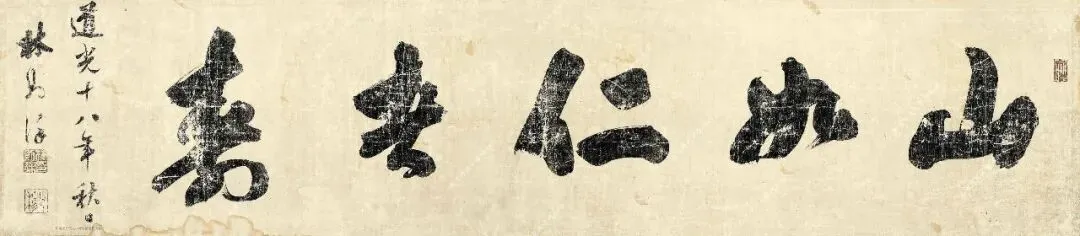 山如仁者壽
道光十八年秋日
林則徐